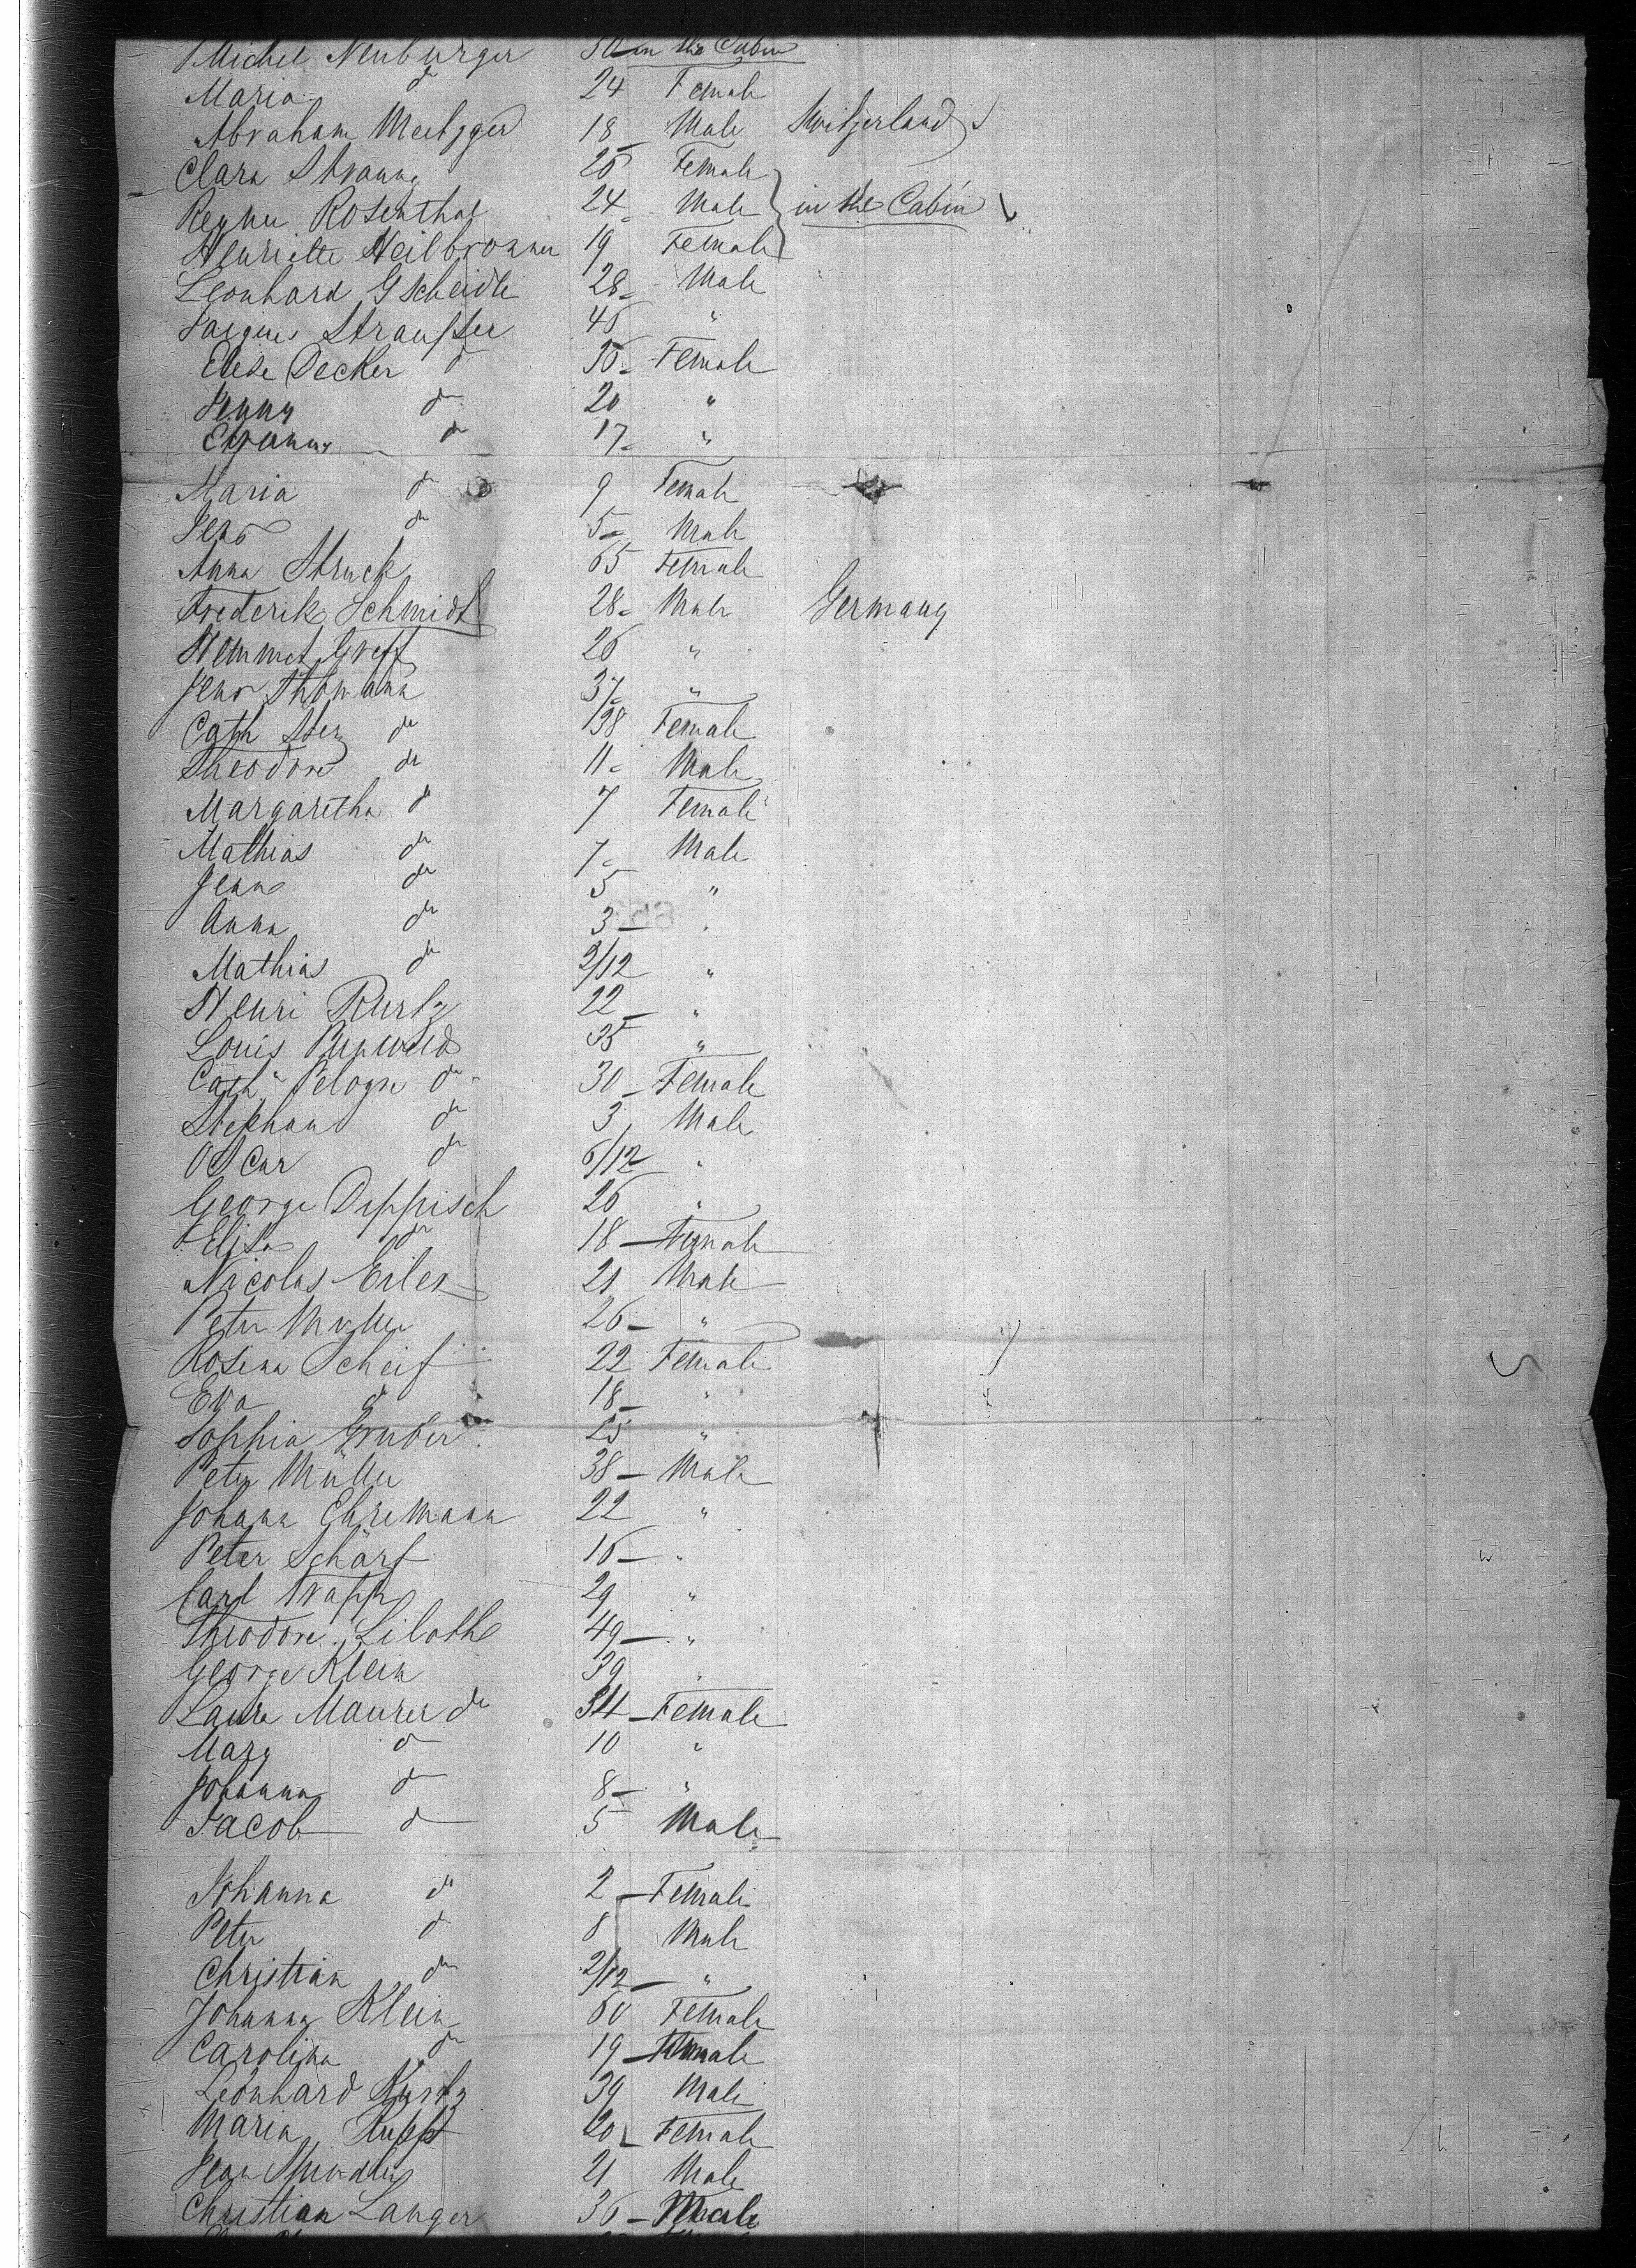 Michel Neuburger 30 in the Cabin
Maria do 24 Female
Abraham Meetzger 18 Male Switzerland
Clara Strauss 26 Female
Rosenthal 24 Male in the Cabin
Henriette Heilbronner 19 Female
Leonhard Gscheidle 28 Male
Jacques Strausser 46 "
Elese Decker do 36 Female
Jenny do 20 "
do 17 "
Maria do 9 Female
Jean do 5 Male
Anna Struck 65 Female
Frederik Schmidt 28 Male Germany
Greff 26 "
Jean Thomann 37 "
Cath do 38 Female
Theodore do 11 Male
Margaretha do 7 Female
Mathias do 7 Male
Jean do 5 "
Anna do 3 "
Mathias do 2/12 "
Henri Kurtz 22 "
Louis 35 "
Cath do 30 Female
Stephan do 3 Male
Oscar do 6/12 "
George Deppisch 26 "
Elisa do 18 Female
Nicolas Eiler 21 Male
Peter Muller 26 "
Rosina Scheif 22 Female
Eva do 18 "
Sophia Gruber 25 "
Peter Müller 38 Male
Johann Ehremann 22 "
Peter Schärf 16 "
Carl Trapp 29 "
Theodore 49 "
George Klein 39 "
Laura Maurer do 34 Female
Mary do 10 "
Johanna do 8 "
Jacob do 5 Male
Johanna do 2 Female
Peter do 8 Male
Christian do 2/12 "
Johanna Klein 60 Female
Carolina do 19 Female
Leonhard Kurtz 39 Male
Maria Rupp 20 Female
Jean 21 Male
Christian Langer 36 Male